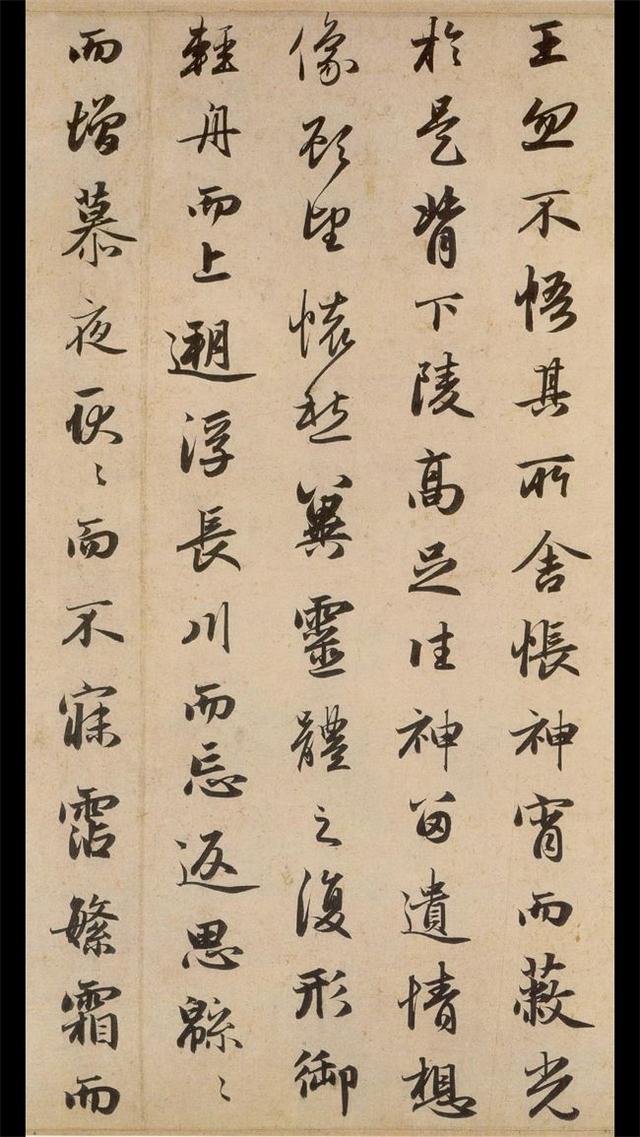 王忽不悟其所舍悵神宵而蔽光
於是背下陵高足往神留遺情想
像顧望懷愁冀靈體之復形御
輕舟而上遡浮長川而忘返思緜〻
而增慕夜耿〻而不寐霑繁霜而